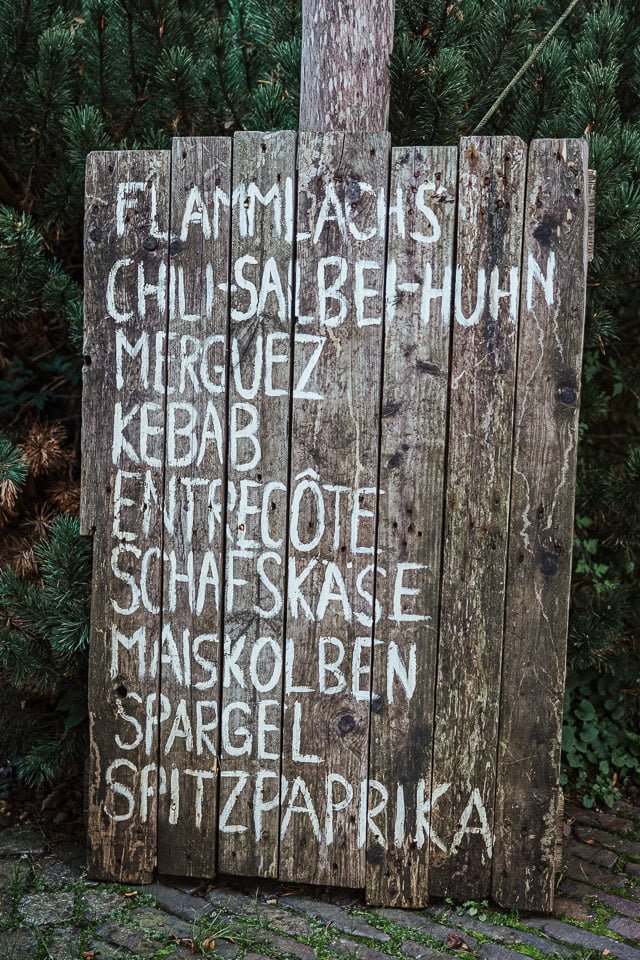 FLAMMLACHS
CHILI-SALBEI-HUHN
MERGUEZ
KEBAB
ENTRECÔTE
SCHAFSKÄSE
MAISKOLBEN
SPARGEL
SPITZPAPRIKA